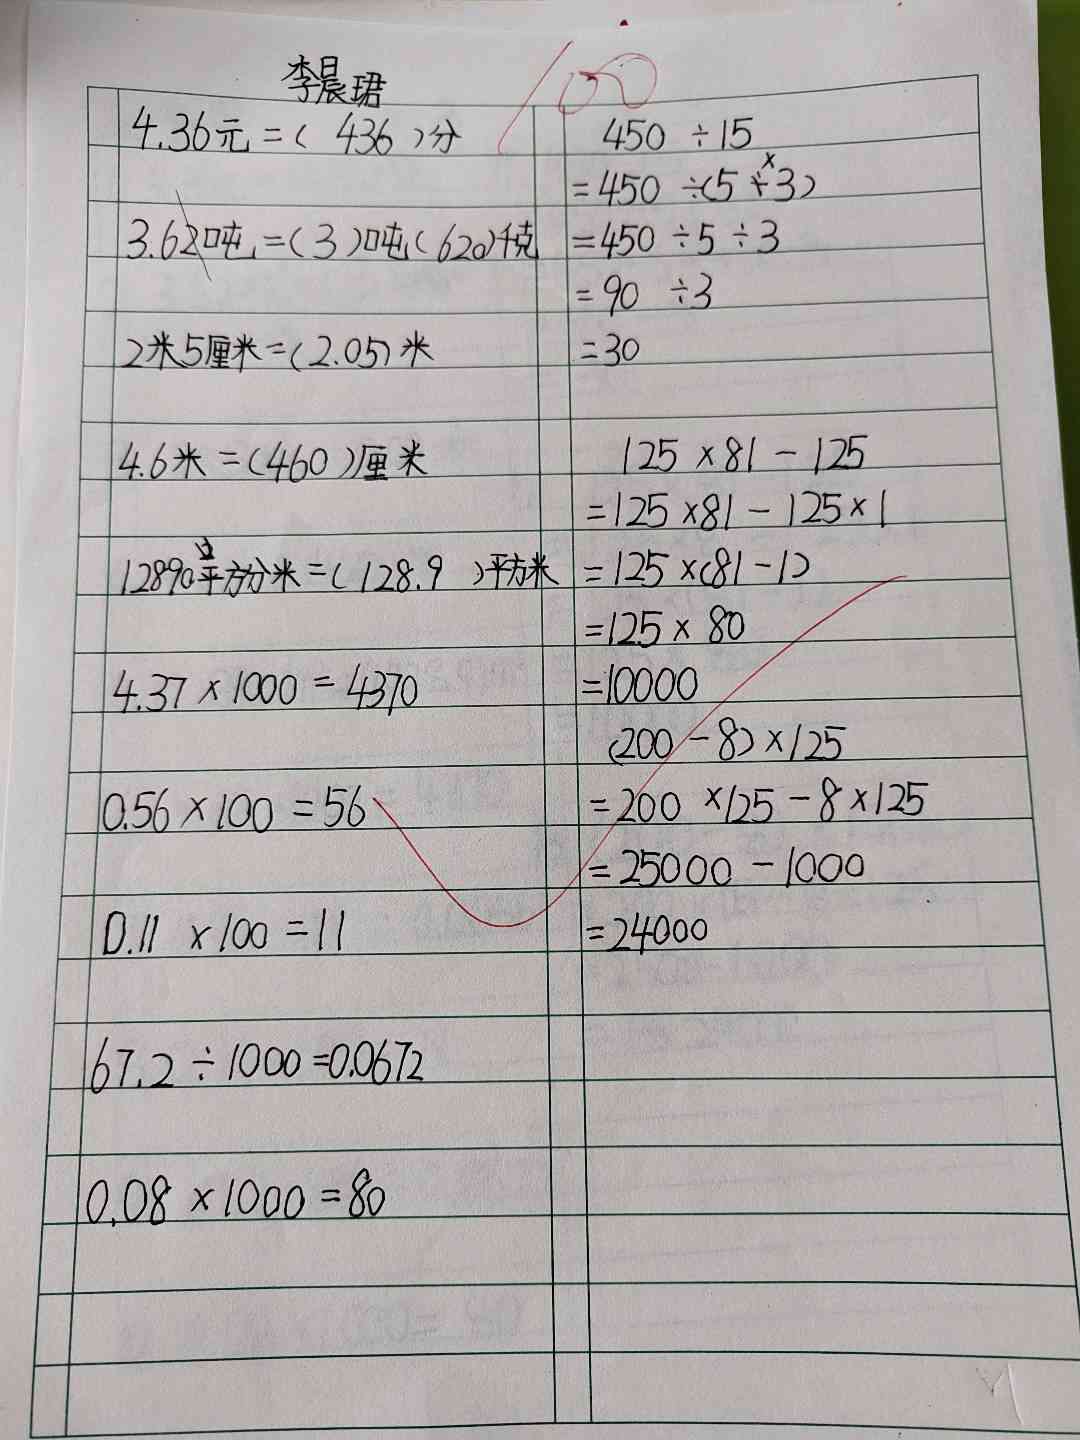 李晨珺
100
4.36元=( 436 )分
3.62吨=(3)吨(620)千克
2米5厘米=(2.05)米
4.6米=(460)厘米
12890平方分米=(128.9 )平方米
4.37×1000=4370
0.56×100=56
0.11×100=11
67.2÷1000=0.0672
0.08×1000=80
450÷15
=450÷(5×3)
=450÷5÷3
=90÷3
=30
125×81-125
=125×81-125×1
=125×(81-1)
=125×80
=10000
(200-8)×125
=200×125-8×125
=25000-1000
=24000